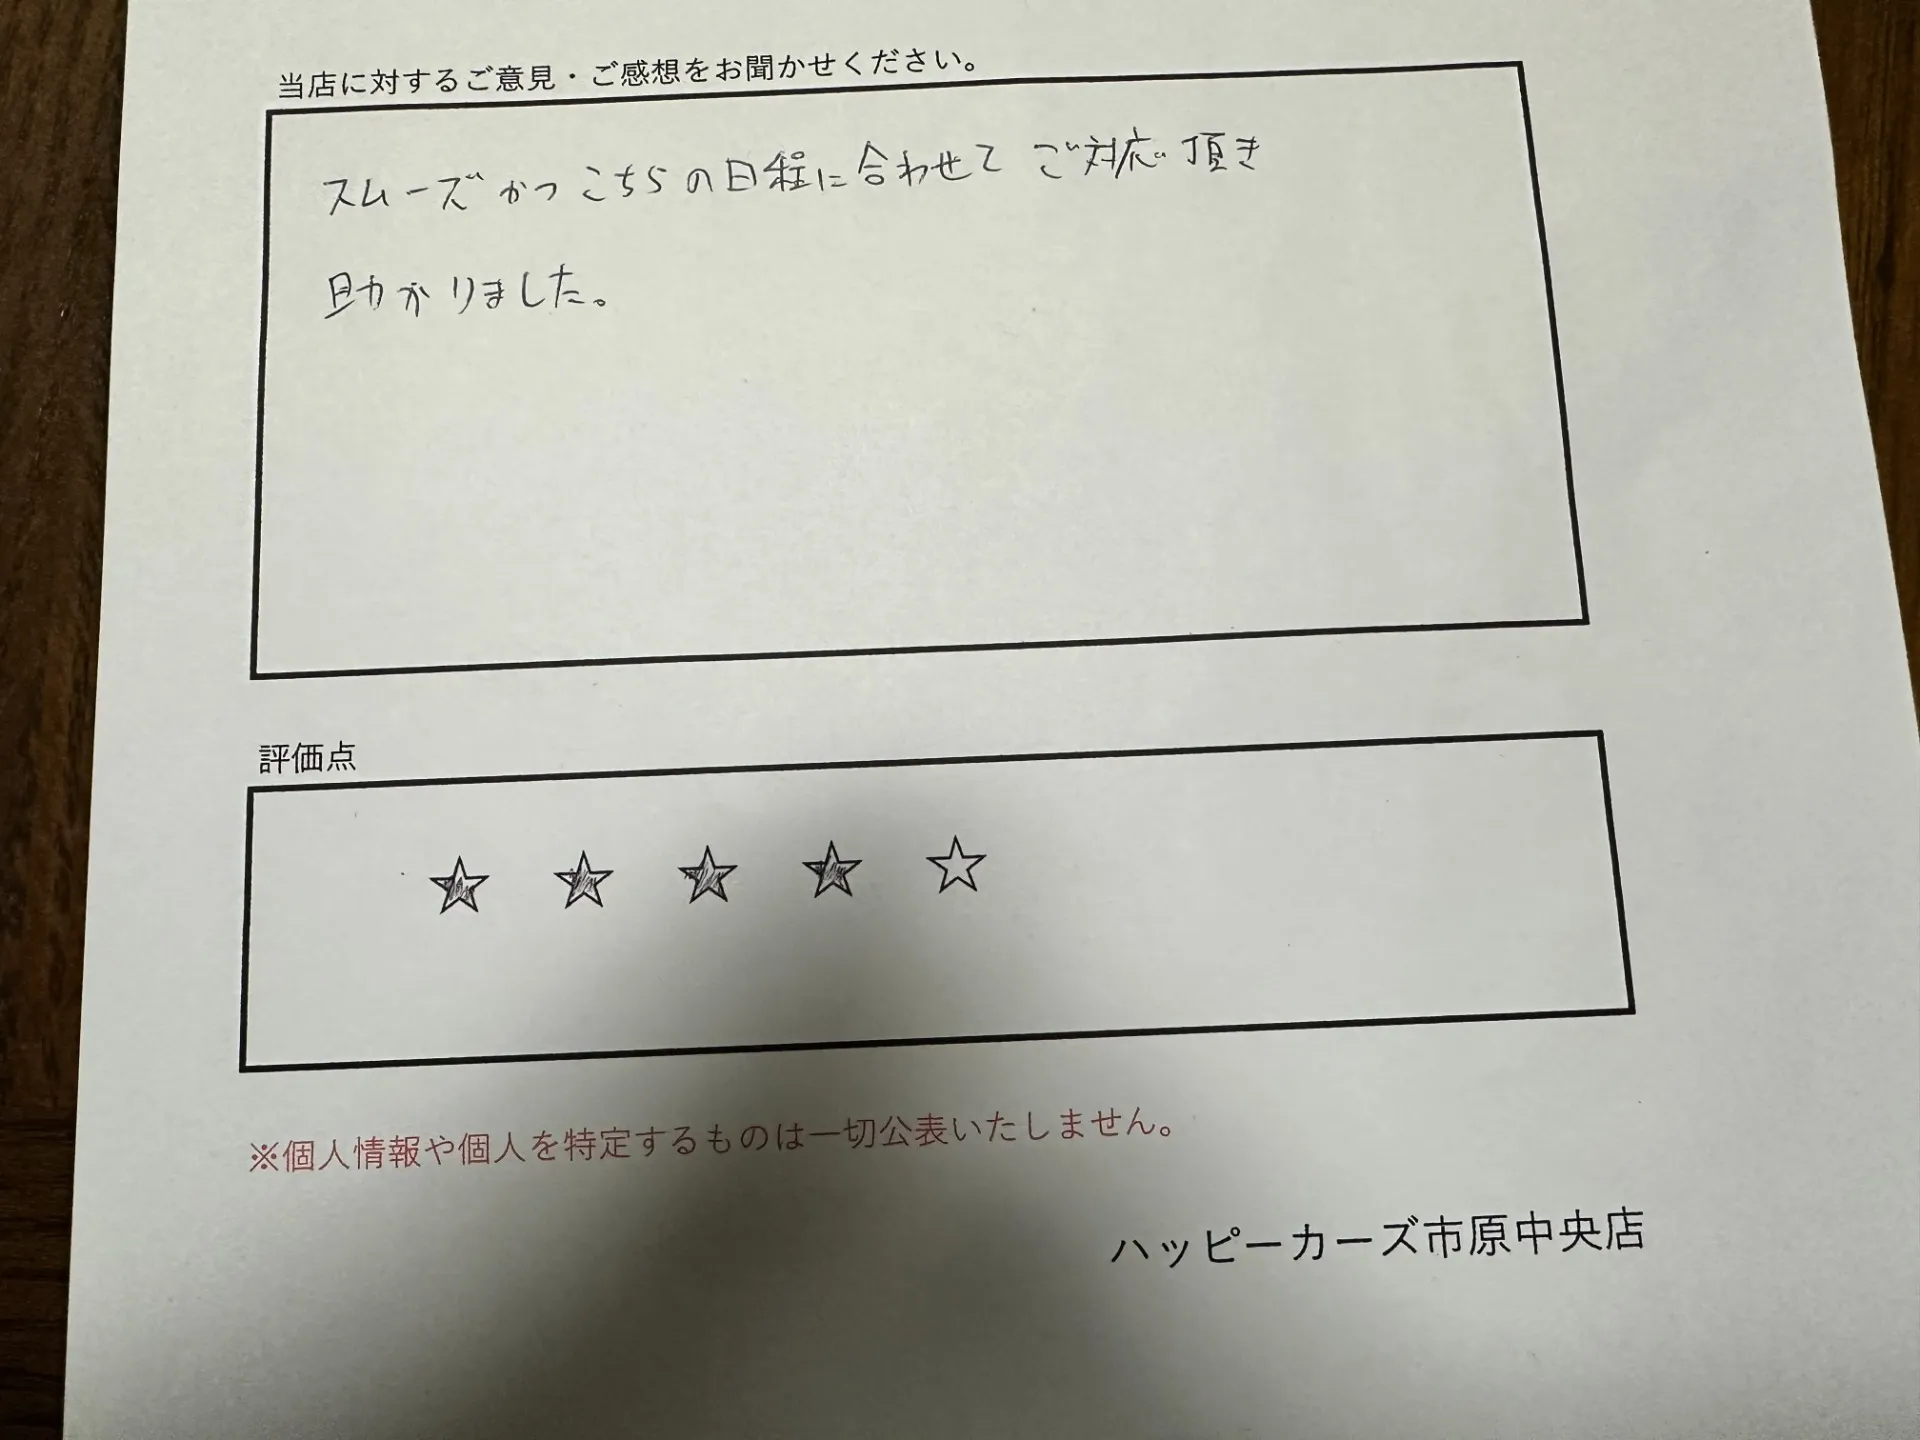 当店に対するご意見・ご感想をお聞かせください。
スムーズかつこちらの日程に合わせてご対応頂き
助かりました。
評価点
★ ★ ★ ★ ☆
※個人情報や個人を特定するものは一切公表いたしません。
ハッピーカーズ市原中央店